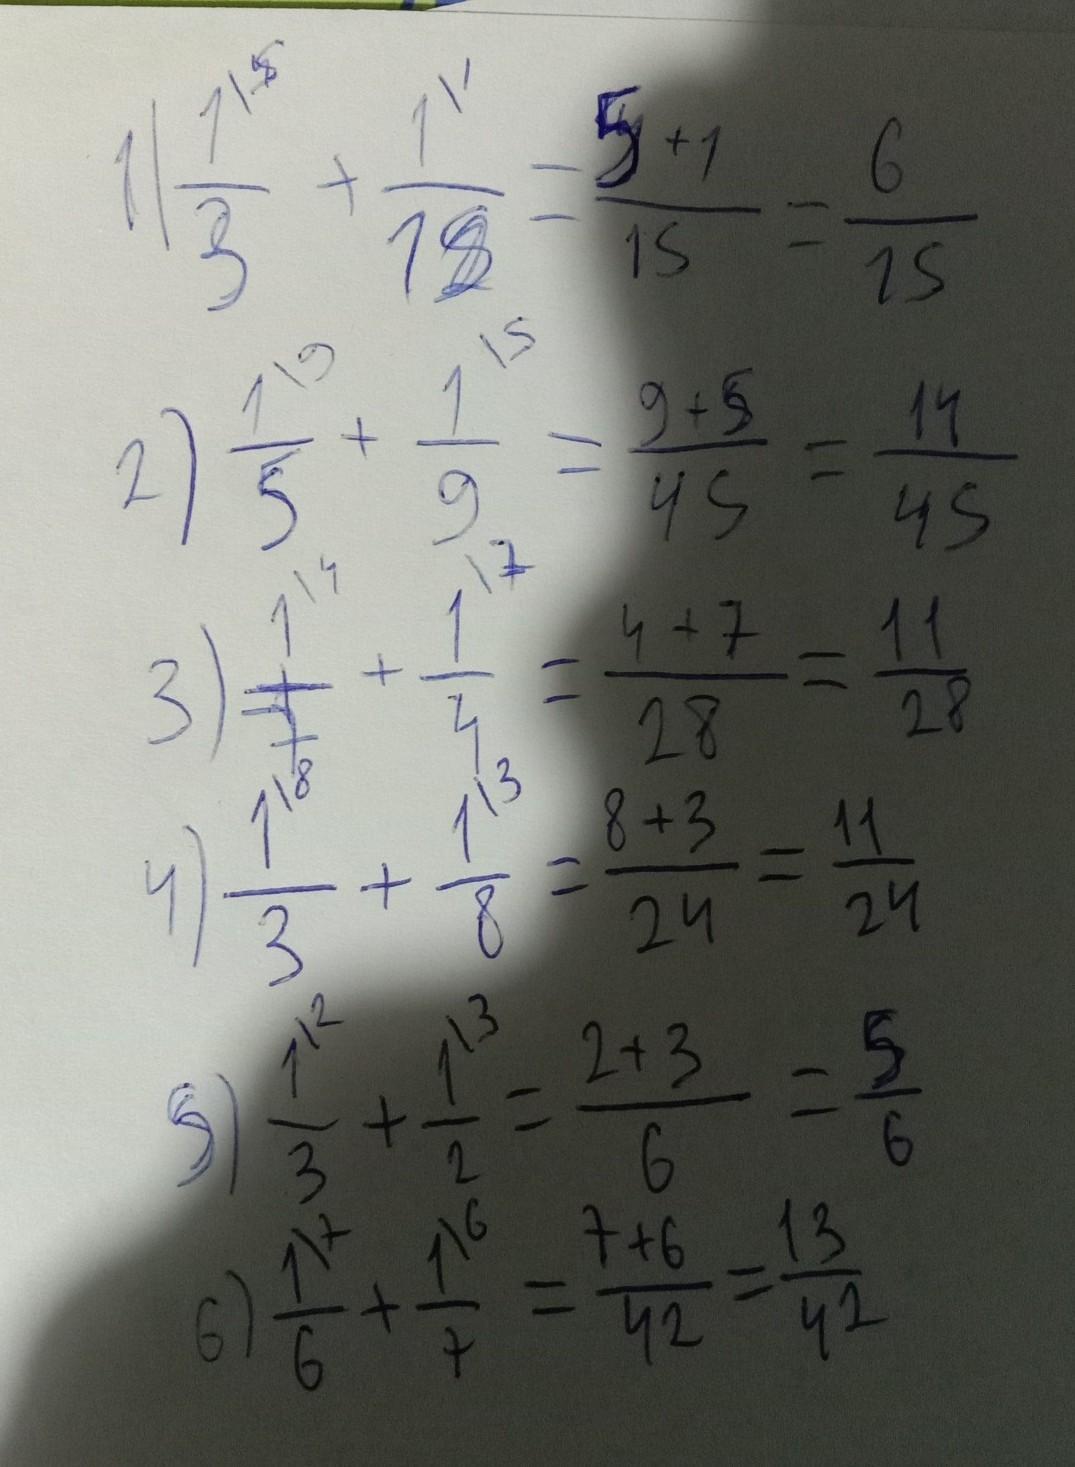 1) 1\5/3 + 1\1/15 = 5+1/15 = 6/15
2) 1\9/5 + 1\5/9 = 9+5/45 = 14/45
3) 1\4/7 + 1\7/4 = 4+7/28 = 11/28
4) 1\8/3 + 1\3/8 = 8+3/24 = 11/24
5) 1\2/3 + 1\3/2 = 2+3/6 = 5/6
6) 1\7/6 + 1\6/7 = 7+6/42 = 13/42